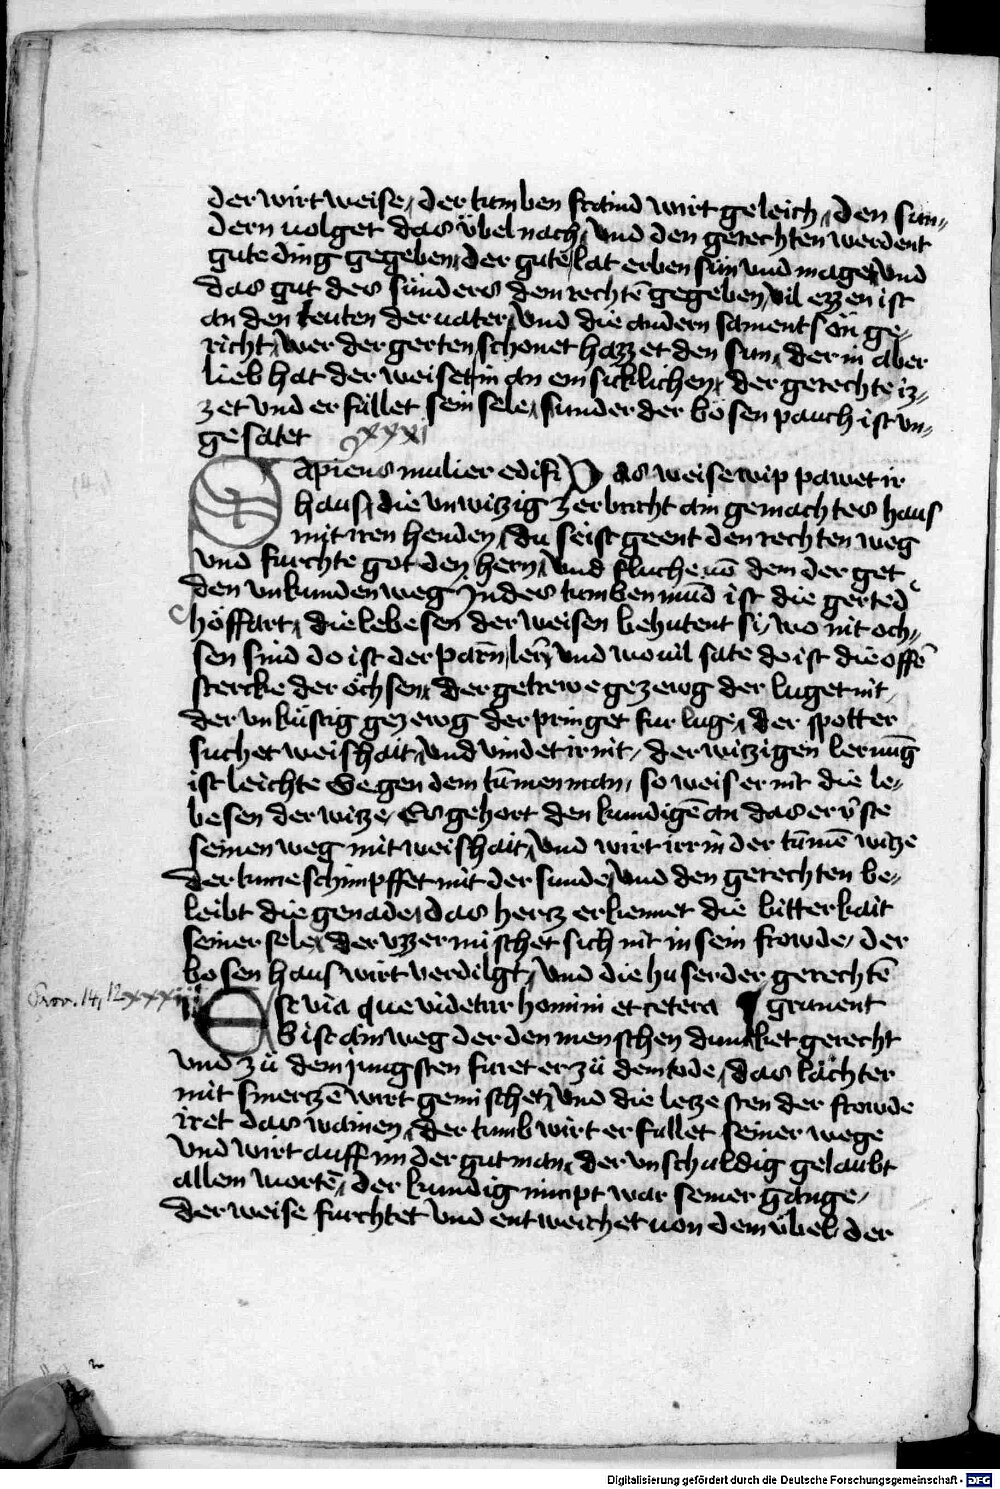 der wirt weise / der tumben fraind wirt geleich / den sun-
dern uolget das v̈bel nach / vnd den gerechten werdent
gute ding gegeben / der gute / lat erben sün vnd mage / vnd
das gut des sünders dem rechtē gegeben / vil ezzen ist
an den reuten der uater / vnd die andern sament sön ge-
richt / wer der gerten / schonet hazzet den sun / der in aber
lieb hat der weiset in an ein sicklichen / der gerechte iz-
zet vnd erfüllet sein sele / sunder der bösen pauch ist vn-
gesatet xxxi
Sapiens mulier edifi Das weise wip pawet ir
haus / die vnwitzig zerbricht ain gemachtes haus
mit iren henden / du seist geent den rechten weg
vnd furchte got den hern / vnd fluche uō dem der get
den vnkunden weg Jn des tumben mūd ist die gerted
höffart / die lebesen der weisen behutent si / wo nit och-
sen sind do ist der parn / ler / vnd wo uil sate do ist die offē
stercke der öchsen / der getrewe gezewg der luget nit /
der vnküstig gezewg der pringet fur luge / der spotter
suchet weishait / vnd vindet ir nit / der witzigen lernūg
ist leichte Gegen dem tūmen man / so weis er nit die le-
besen der witze / Es gehort den kundigē an das er v̄ste
seinen weg mit weishait / vnd wirt irr in der tūmē witze
der tume schimpffet mit der sunde / vnd den gerechten be-
leibt die genade / das hertz erkennet die bitterkait
seiner sele / der vzzer mischet sich nit in sein frowde / der
bosen haus wirt verdilgt / vnd die huser der gerechtē
Prov. 14, 12 xxxii Est via que videtur homini et cetera ¶ grunent
Es ist ain weg der den menschen dunket gerecht
vnd zü dem jungsten furet er zü dem tode / das lachter
mit smerzē wirt gemischet / vnd die letzesten der frowde
iret das wainen / der tumb wirt erfullet seiner wege
vnd wirt auff im der gut man / der vnschuldig gelaubt
allem wortē / der kundig nimpt war seiner gange /
der weise furchtet vnd entweichet uon dem v̈bel / der
Digitalisierung gefördert durch die Deutsche Forschungsgemeinschaft - DFG